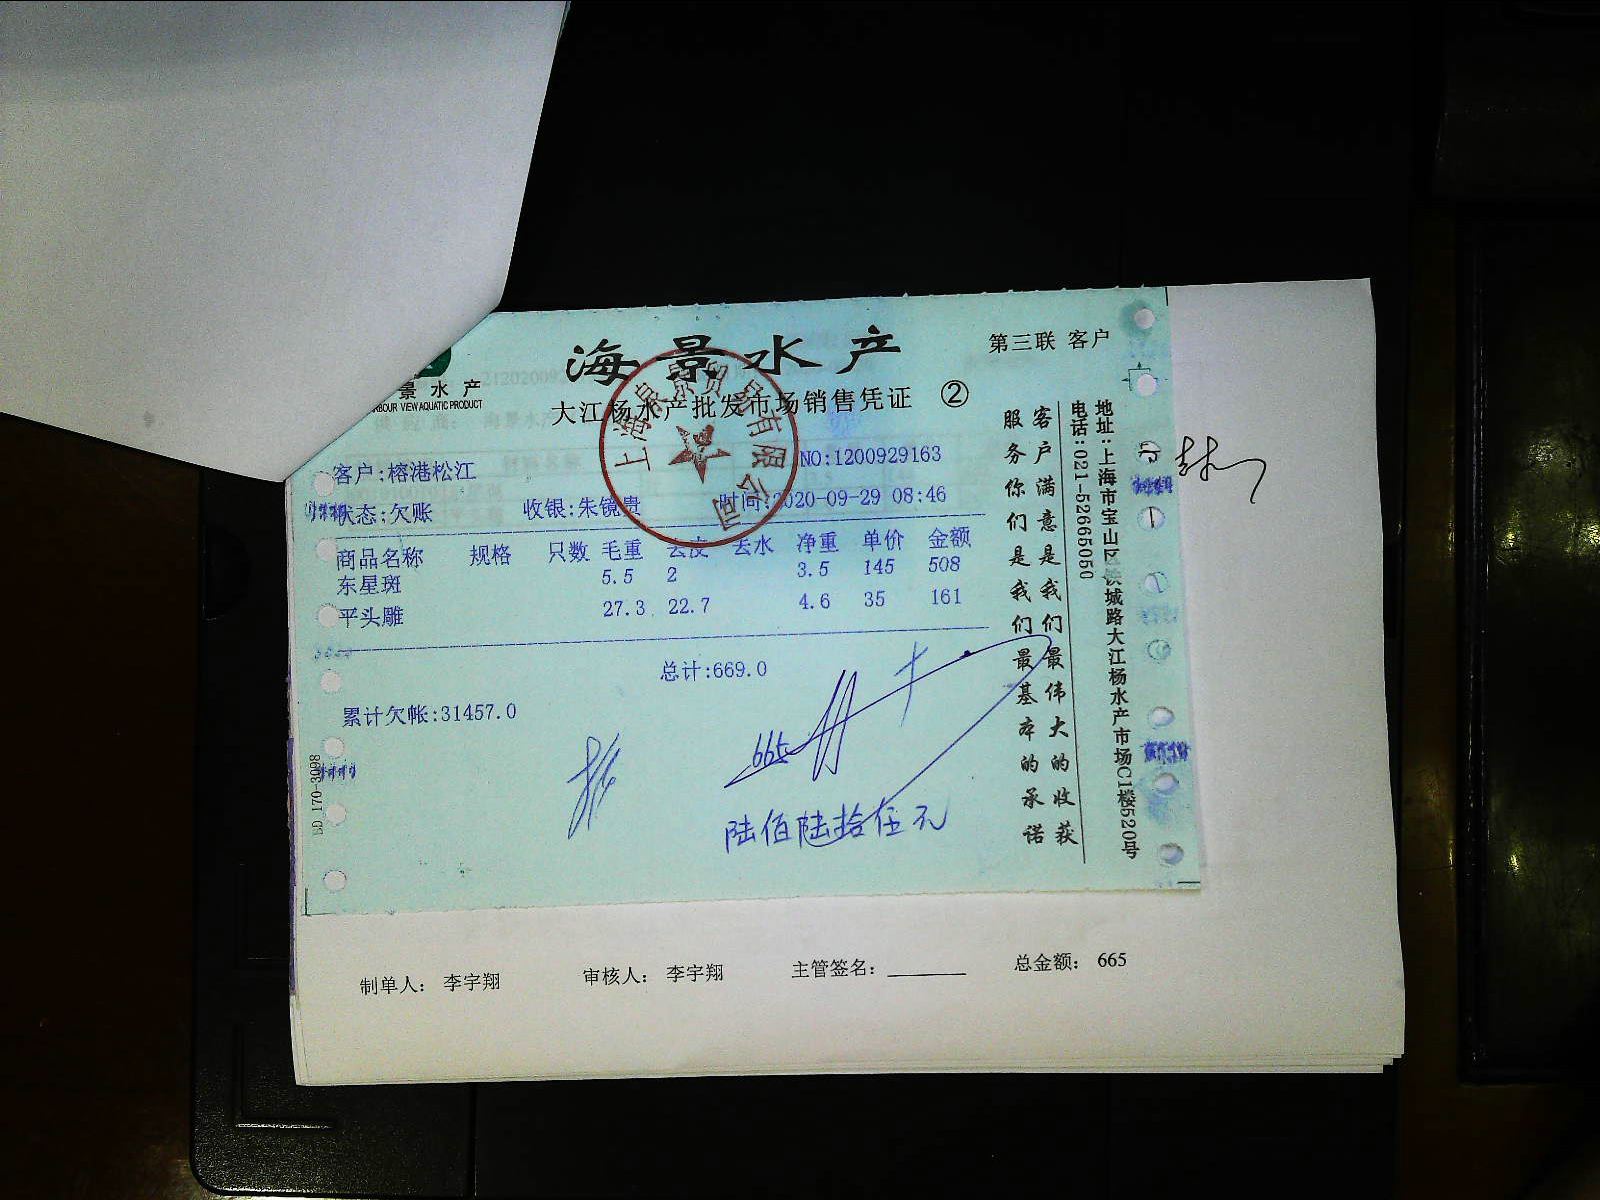 海景水产
第三联 客户
景水产
RBOUR VIEW AQUATIC PRODUCT
大江杨水产批发市场销售凭证 ②
上海泉景贸易有限公司
客户:榕港松江
NO:1200929163
状态:欠账 收银:朱镜贵 时间:2020-09-29 08:46
商品名称 规格 只数 毛重 去皮 去水 净重 单价 金额
东星斑 5.5 2 3.5 145 508
平头雕 27.3 22.7 4.6 35 161
总计:669.0
累计欠帐:31457.0
665
陆佰陆拾伍元
客户满意是我们最伟大的收获
服务你们是我们最基本的承诺
地址:上海市宝山区铁城路大江杨水产市场C1楼520号
电话:021-52665050
BD 170-3098
制单人: 李宇翔 审核人: 李宇翔 主管签名: 总金额: 665